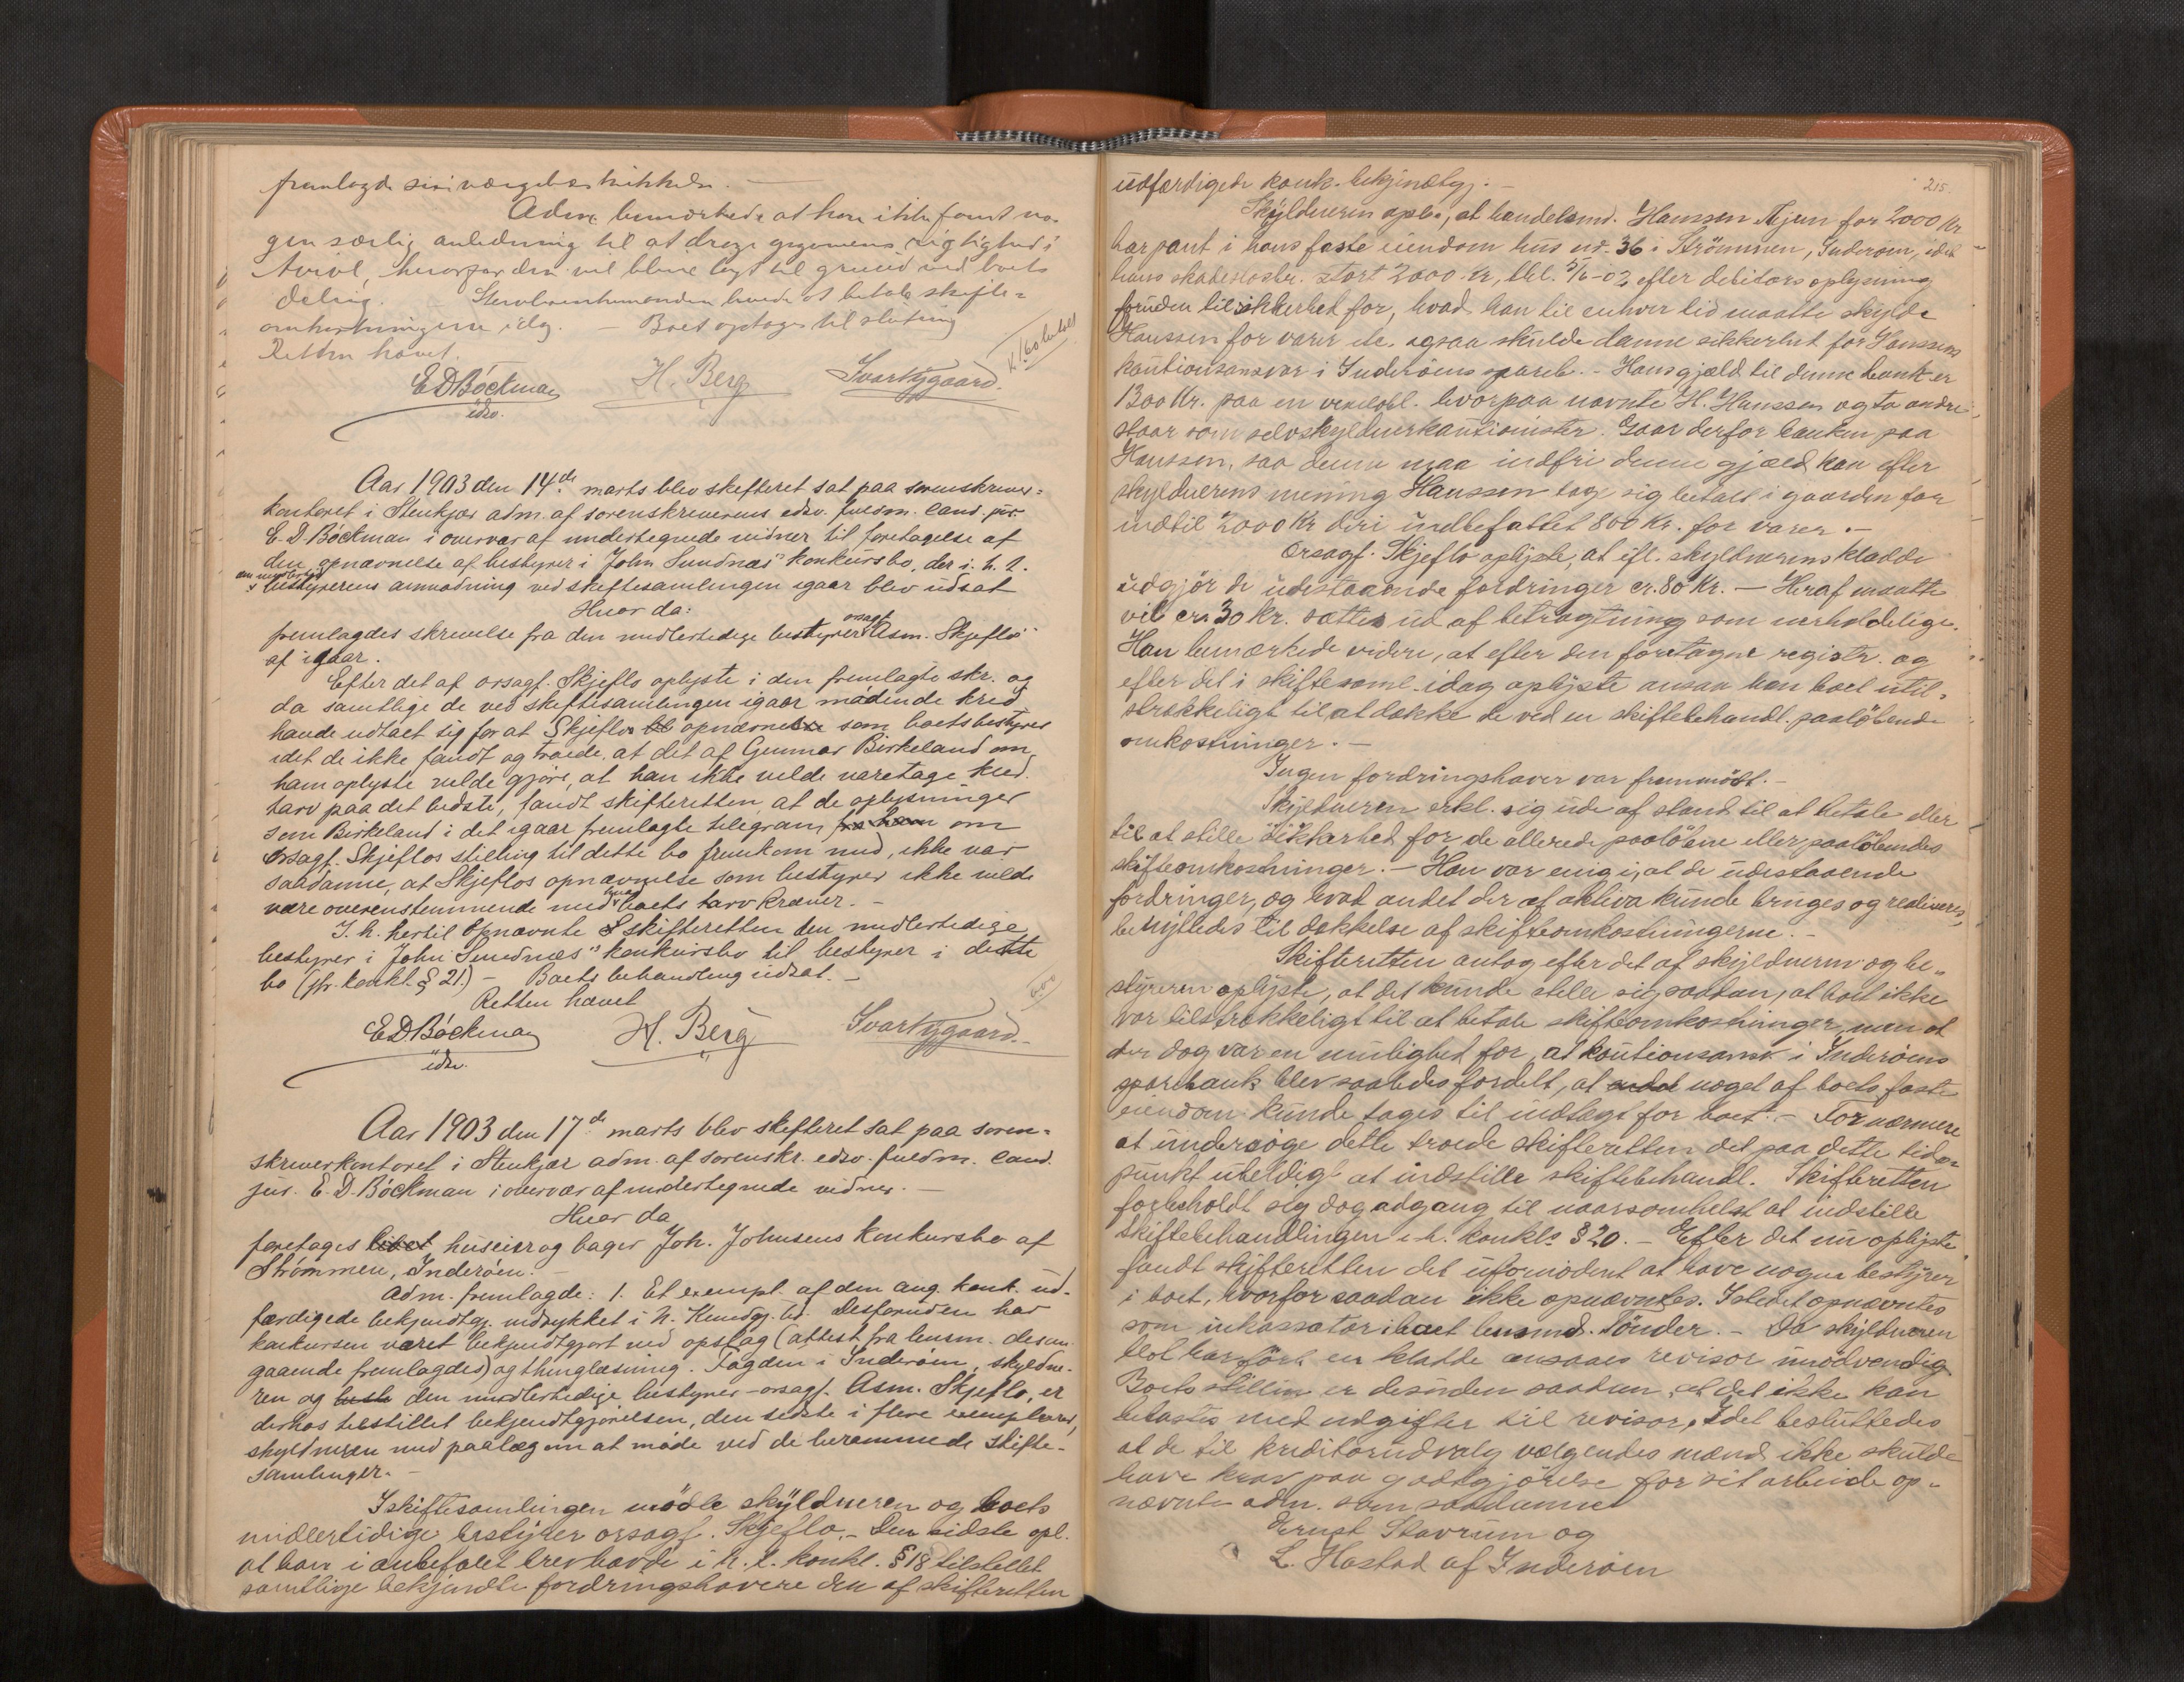 fremlagde sin værgebeskikkelse. —
Adm. bemærkede at han ikke fandt no-
gen særlig anledning til at drage opgavens rigtighed i
tvivl, hvorfor den vil blive lagt til grund ved boets
deling. — Stervboenkemanden lovede at betale skifte-
omkostningerne idag. — Boet optages til slutning
Retten hævet.
E D Böckman H. Berg Ivar Nygaard.
edsv.
Aar 1903 den 14de marts blev skifteret sat paa sorenskriver-
kontoret i Stenkjær adm. af sorenskriverens edsv. fuldm. cand. jur.
E. D. Böckman i overvær af undertegnede vidner til foretagelse af
den opnævnelse af bestyrer i John Sundnæs' konkursbo, der i. h. t.
den midlertidige
bestyrerens anmodning ved skiftesamlingen igaar blev udsat
Hvor da:
fremlagdes skrivelse fra den midlertidige bestyrer orsagf. Asm. Skjeflo
af igaar.
Efter det af orsagf. Skjeflo oplyste i den fremlagte skr. og
da samtlige de ved skiftesamlingen igaar mødende kred.
havde udtalt sig for at Skjeflo opnævnes som boets bestyrer
idet de ikke fandt og troede, at det af Gunnar Birkeland om
ham oplyste vilde gjøre, at han ikke vilde varetage kred.
tarv paa det bedste, fandt skifteretten at de oplysninger
som Birkeland i det igaar fremlagte telegram fra ham om
orsagf. Skjeflos stilling til dette bo fremkom med, ikke var
saadanne, at Skjeflos opnævnelse som bestyrer ikke vilde
være overenstemmende med hvad boets tarv kræver. —
I. h. hertil opnævnte skifteretten den midlertidige
bestyrer i John Sundnæs' konkursbo til bestyrer i dette
bo (jfr. konkl. § 21.) — Boets behandling udsat. —
Retten hævet
E D Böckman H. Berg Ivar Nygaard.
edsv.
Aar 1903 den 17de marts blev skifteret sat paa soren-
skriverkontoret i Stenkjær adm. af sorenskr. edsv. fuldm. cand.
jur. E. D. Böckman i overvær af undertegnede vidner. —
Hvor da
foretages huseier og bager Joh. Johnsens konkursbo af
Strømmen, Inderøen. —
Adm. fremlagde: 1. Et exempl. af den ang. konk. ud-
færdigede bekjendtgj. indrykket i N. Kundgj. td. Desforuden har
konkursen været bekjendtgjort ved opslag (attest fra lensm. desan-
gaaende fremlagdes) og thinglæsning. Fogden i Inderøen, skyldne-
ren og den midlertidige bestyrer - orsagf. Asm. Skjeflo, er
derhos tilstillet bekjendtgjørelsen, den sidste i flere exemplarer,
skyldneren med paalæg om at møde ved de berammede skifte-
samlinger. —
I skiftesamlingen mødte skyldneren og boets
midlertidige bestyrer orsagf. Skjeflo. — Den sidste opl.
at han i anbefalet brev havde i h. t. konkl. § 18 tilstillet
samtlige bekjendte fordringshavere den af skifteretten
215.
udfærdigede konk. bekjendtgj. —
Skyldneren opl., at handelsmd. Hanssen for 2000 Kr
har pant i hans faste eiendom hus no. 36 i Strömmen, Inderøen, idet
hans skadesløsbr. stort 2000 Kr, efter debitors oplysning
foruden til sikkerhet for, hvad han til enhver tid maatte skylde
Hanssen for varer etc. ogsaa skulde danne sikkerhet for Hanssens
kautionsansvar i Inderøens spareb. — Hans gjæld til denne bank er
1300 Kr. paa en vexelobl. hvorpaa nævnte H. Hanssen og to andre
staar som selvskyldnerkautionister. Gaar derfor banken paa
Hanssen, saa denne maa indfri denne gjæld kan efter
skyldnerens mening Hanssen tage sig betalt i gaarden for
indtil 2000 Kr deri indbefattet 800 Kr. for varer. —
Orsagf. Skjeflo oplyste, at ifl. skyldnerens kladde
udgjör de udestaaende fordringer ca. 80 Kr. — Heraf maatte
vel ca 30 Kr. sættes ud af betragtning som uerholdelige.
Han bemærkede videre, at efter den foretagne registr. og
efter det i skiftesaml. idag oplyste ansaa han boet util-
strækkeligt til at dække de ved en skiftebehandl. paaløbende
omkostninger. —
Ingen fordringshaver var fremmödt. —
Skyldneren erkl. sig ude af stand til at betale eller
til at stille sikkerhed for de allerede paaløbne eller paaløbendes
skifteomkostninger. — Han var enig i, at de udestaaende
fordringer, og hvad andet der af aktiva kunde bruges og realiseres,
benyttedes til dækkelse af skifteomkostningerne. —
Skifteretten antog efter det af skyldneren og be-
styreren oplyste, at det kunde stille sig saadan, at boet ikke
var tilstrækkeligt til at betale skifteomkostninger, men at
der dog var en mulighet for, at kautionsansv. i Inderøens
sparebank blev saaledes fordelt, at noget af boets faste
eiendom kunde tages til indtægt for boet. — For nærmere
at undersöge dette troede skifteretten det paa dette tids-
punkt uheldigt at indstille skiftebehandl. Skifteretten
forbeholdt sig dog adgang til naarsomhelst at indstille
skiftebehandlingen i. h. konkls § 20. — Efter det nu oplyste
fandt skifteretten det ufornödent at have nogen bestyrer
i boet, hvorfor saadan ikke opnævntes. Istedet opnævntes
som inkassator i boet lensmd. Tönder. — Da skyldneren
blot har ført en kladde ansaaes revisor unödvendig
Boets stilling er desuden saadan, at det ikke kan
belastes med udgifter til revisor. Idet besluttedes
at de til kreditorudvalg vælgendes mænd ikke skulde
have krav paa godtgjörelse for sit arbeide op-
nævnte adm. som saadanne
Ernst Stavrum og
L. Hastad af Inderøen